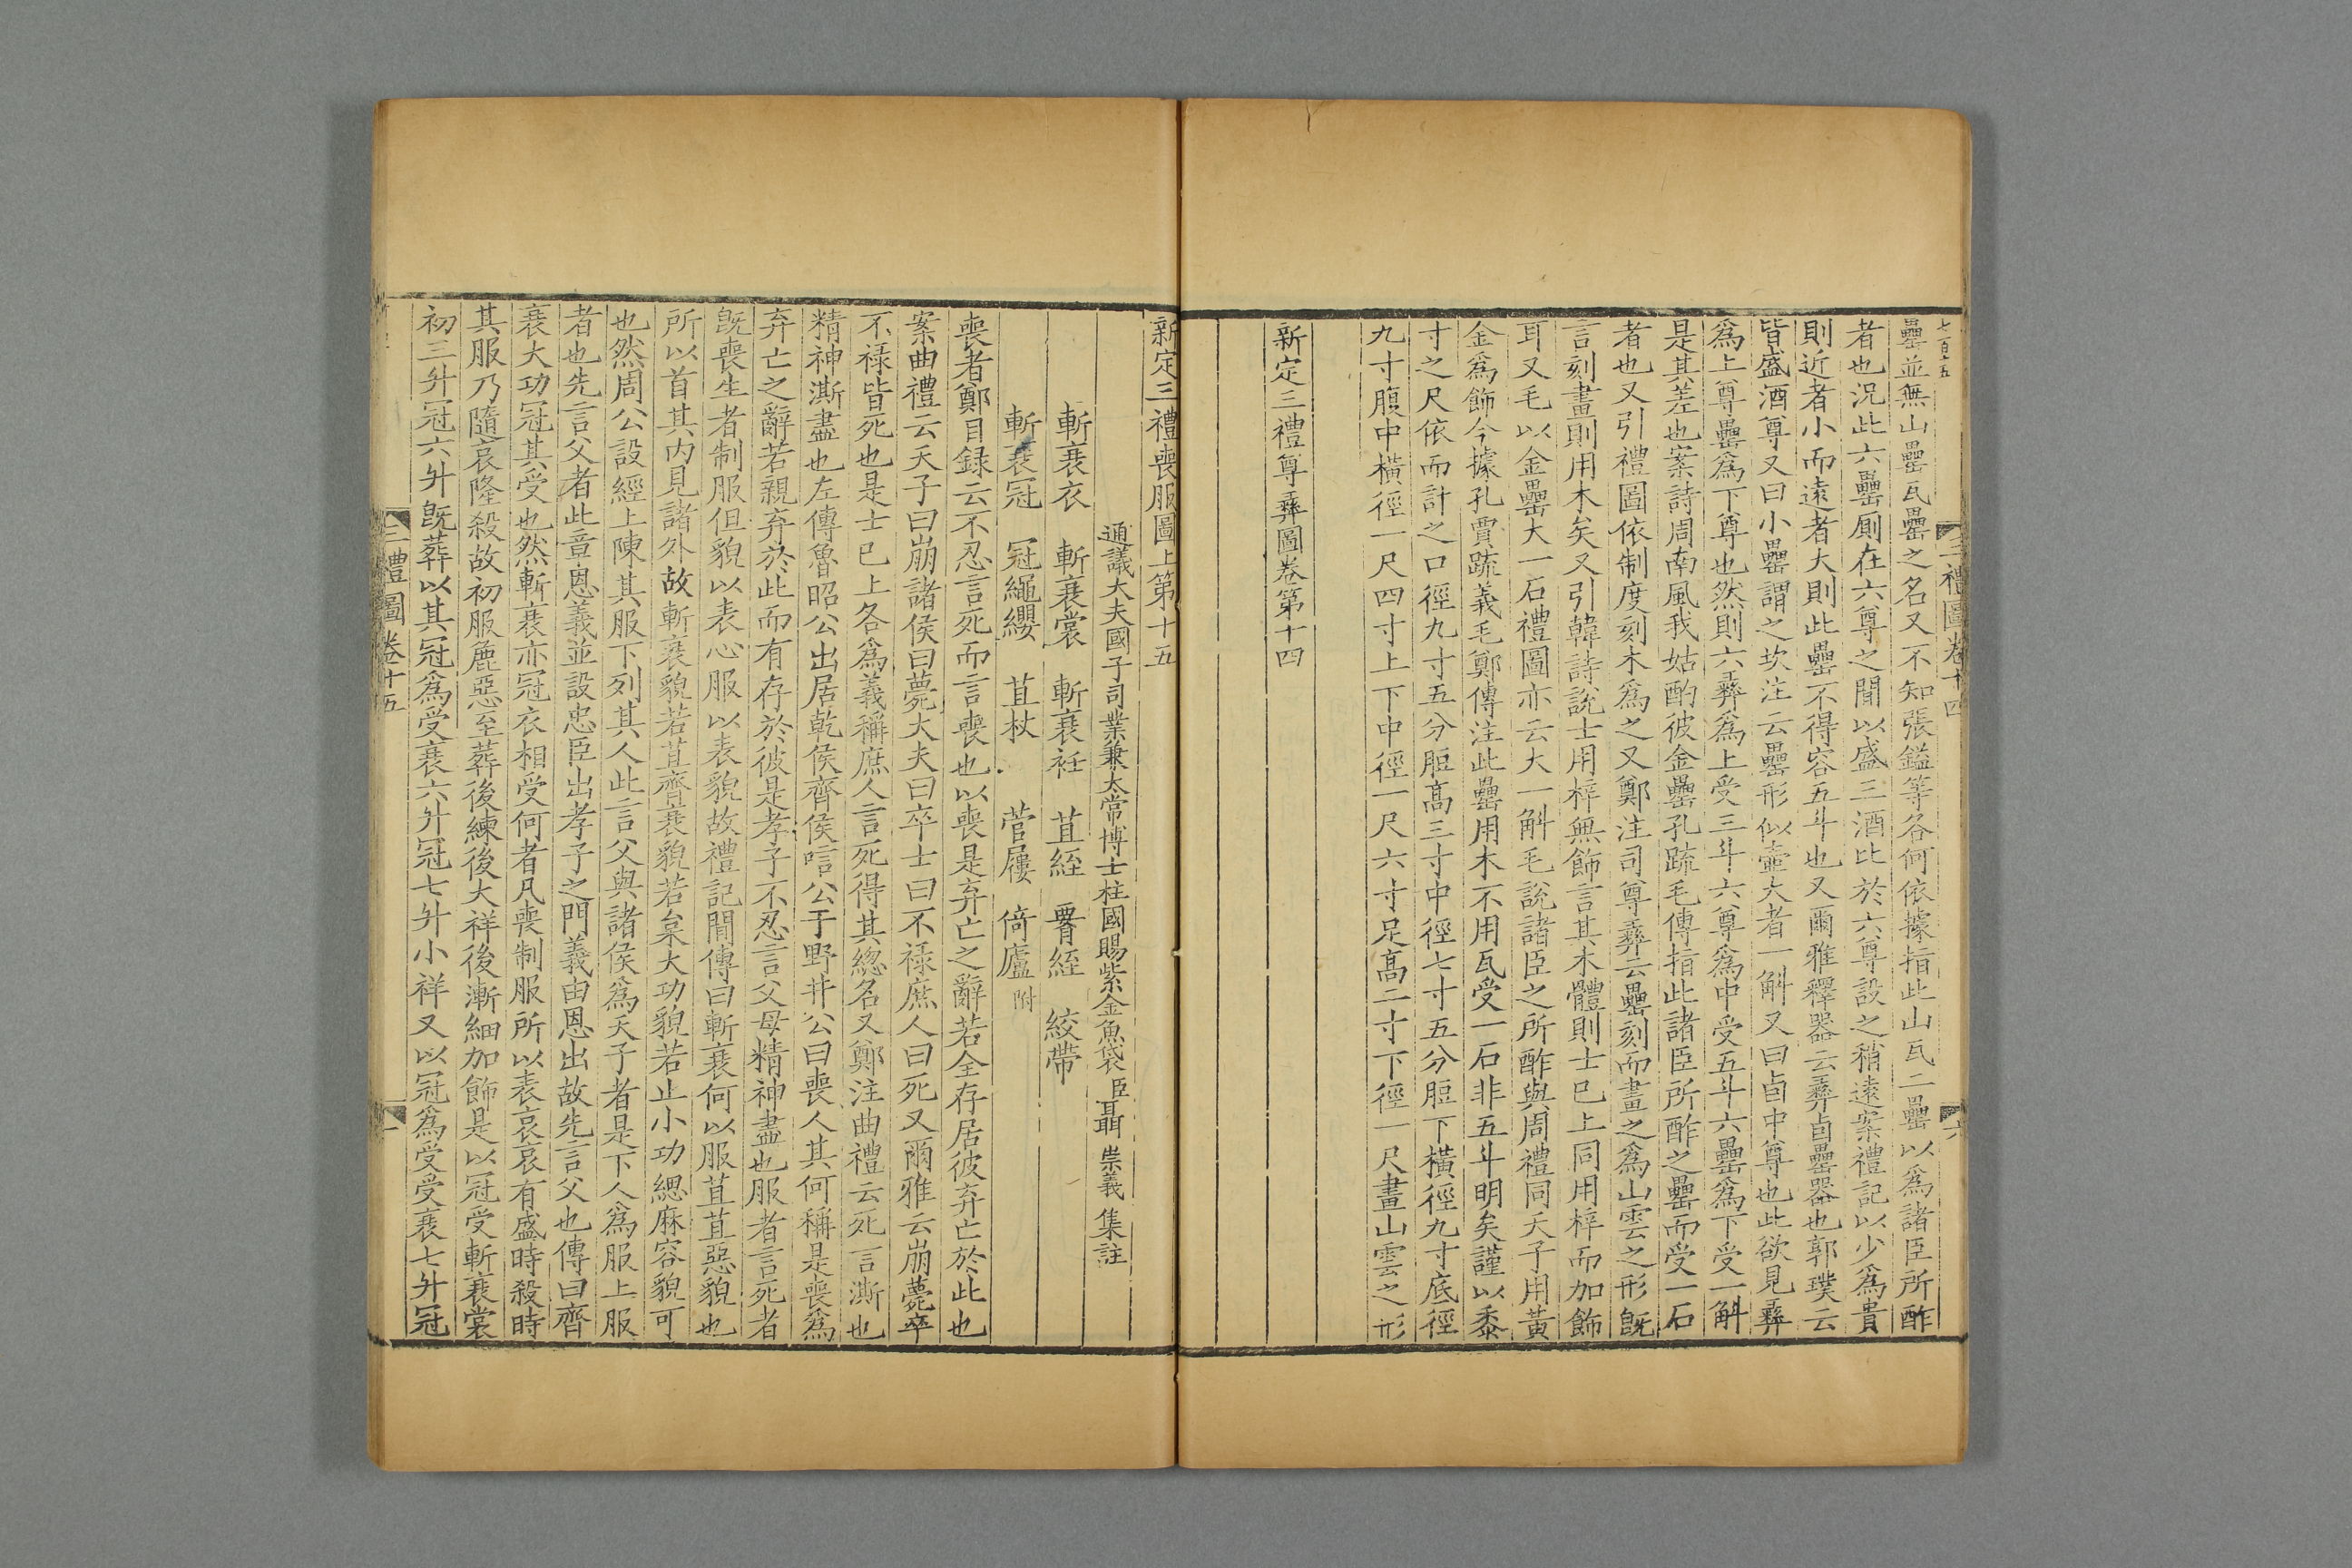 七百十五
三禮圖卷十四
六
罍並無山罍瓦罍之名又不知張鎰等各何依據指此山瓦二罍以爲諸臣所酢
者也況此六罍厠在六尊之間以盛三酒比於六尊設之稍遠案禮記以少爲貴
則近者小而遠者大則此罍不得容五斗也又爾雅釋器云彝卣罍器也郭璞云
皆盛酒尊又曰小罍謂之坎注云罍形似壷大者一斛又曰卣中尊也此欲見彝
爲上尊罍爲下尊也然則六彝爲上受三斗六尊爲中受五斗六罍爲下受一斛
是其差也案詩周南風我姑酌彼金罍孔疏毛傳指此諸臣所酢之罍而受一石
者也又引禮圖依制度刻木爲之又鄭注司尊彝云罍刻而畫之爲山雲之形旣
言刻畫則用木矣又引韓詩說士用梓無飾言其木體則士已上同用梓而加飾
耳又毛以金罍大一石禮圖亦云大一斛毛說諸臣之所酢與周禮同天子用黃
金爲飾今據孔賈疏義毛鄭傳注此罍用木不用瓦受一石非五斗明矣謹以黍
寸之尺依而計之口徑九寸五分脰高三寸中徑七寸五分脰下橫徑九寸底徑
九寸腹中橫徑一尺四寸上下中徑一尺六寸足高二寸下徑一尺畫山雲之形
新定三禮尊彝圖卷第十四
新定三禮喪服圖上第十五
通議大夫國子司業兼太常博士柱國賜紫金魚袋臣聶 崇義 集註
斬衰衣 斬衰裳 斬衰衽 苴絰 要絰 絞帶
斬衰冠 冠繩纓 苴杖 菅屨 倚廬附
喪者鄭目録云不忍言死而言喪也以喪是弃亡之辭若全存居彼弃亡於此也
案曲禮云天子曰崩諸侯曰薨大夫曰卒士曰不祿庶人曰死又爾雅云崩薨卒
不祿皆死也是士已上各爲義稱庶人言死得其緫名又鄭注曲禮云死言澌也
精神澌盡也左傳魯昭公出居乾侯齊侯唁公于野井公曰喪人其何稱是喪爲
弃亡之辭若親弃於此而有存於彼是孝子不忍言父母精神盡也服者言死者
旣喪生者制服但貌以表心服以表貌故禮記閒傳曰斬衰何以服苴苴惡貌也
所以首其內見諸外故斬衰貌若苴齊衰貌若枲大功貌若止小功緦麻容貌可
也然周公設經上陳其服下列其人此言父與諸侯爲天子者是下人爲服上服
者也先言父者此章恩義並設忠臣出孝子之門義由恩出故先言父也傳曰齊
衰大功冠其受也然斬衰亦冠衣相受何者凡喪制服所以表哀哀有盛時殺時
其服乃隨哀隆殺故初服麁惡至葬後練後大祥後漸細加飾是以冠受斬衰裳
初三升冠六升旣葬以其冠爲受衰六升冠七升小祥又以冠爲受受衰七升冠
三禮圖卷十五
一